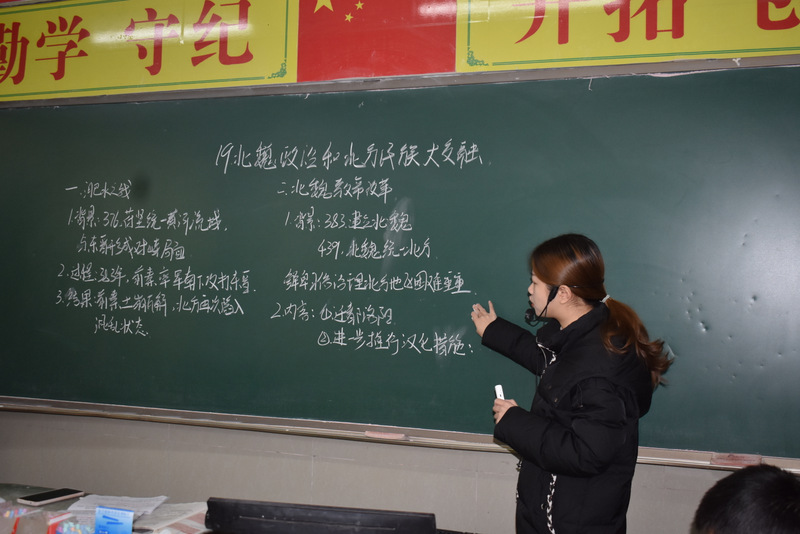 勤学 守纪
开拓
19.北魏政治和北方民族大交融.
一.淝水之战
1.背景:376,苻坚统一黄河流域,
与东晋形成对峙局面
2.过程:383年,前秦率军南下攻打东晋
3.结果:前秦土崩瓦解,北方再次陷入
混乱状态.
二.北魏孝文帝改革
1.背景:383.建立北魏
439.北魏统一北方
鲜卑 北方地区困难重重
2.内容:①迁都洛阳
②进一步推行汉化措施: